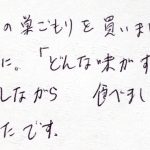 の巣ごもりを買いま
に。「どんな味がす
しながら 食べまし
たです。